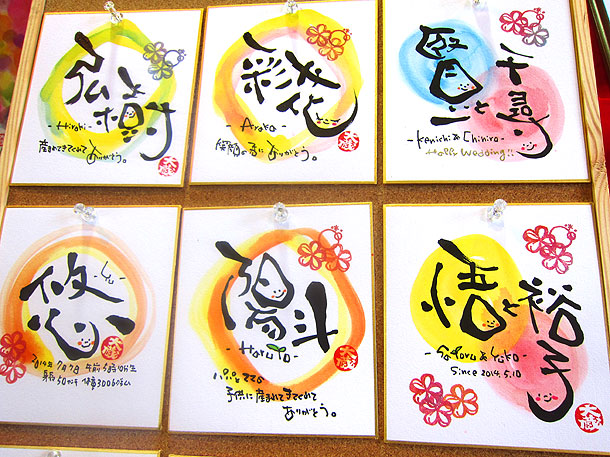 弘樹
-Hiroki-
産まれてきてくれて
ありがとう。
彩花
-Ayaka-
笑顔の君に ありがとう。
賢一と
千尋
-Kenichi & Chihiro-
Happy Wedding!!
悠
-Yu-
2014年7月7日 午前5時10分生
身長50センチ 体重3006グラム
陽斗
-Haruto-
パパとママの
子供に産まれてきてくれて
ありがとう。
悟と
裕子
-Satoru & Yuko-
Since 2014.5.10